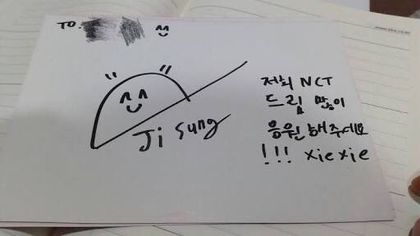 TO.
Ji Sung
저희 NCT
드림 많이
응원해주세요
!!! xiexie